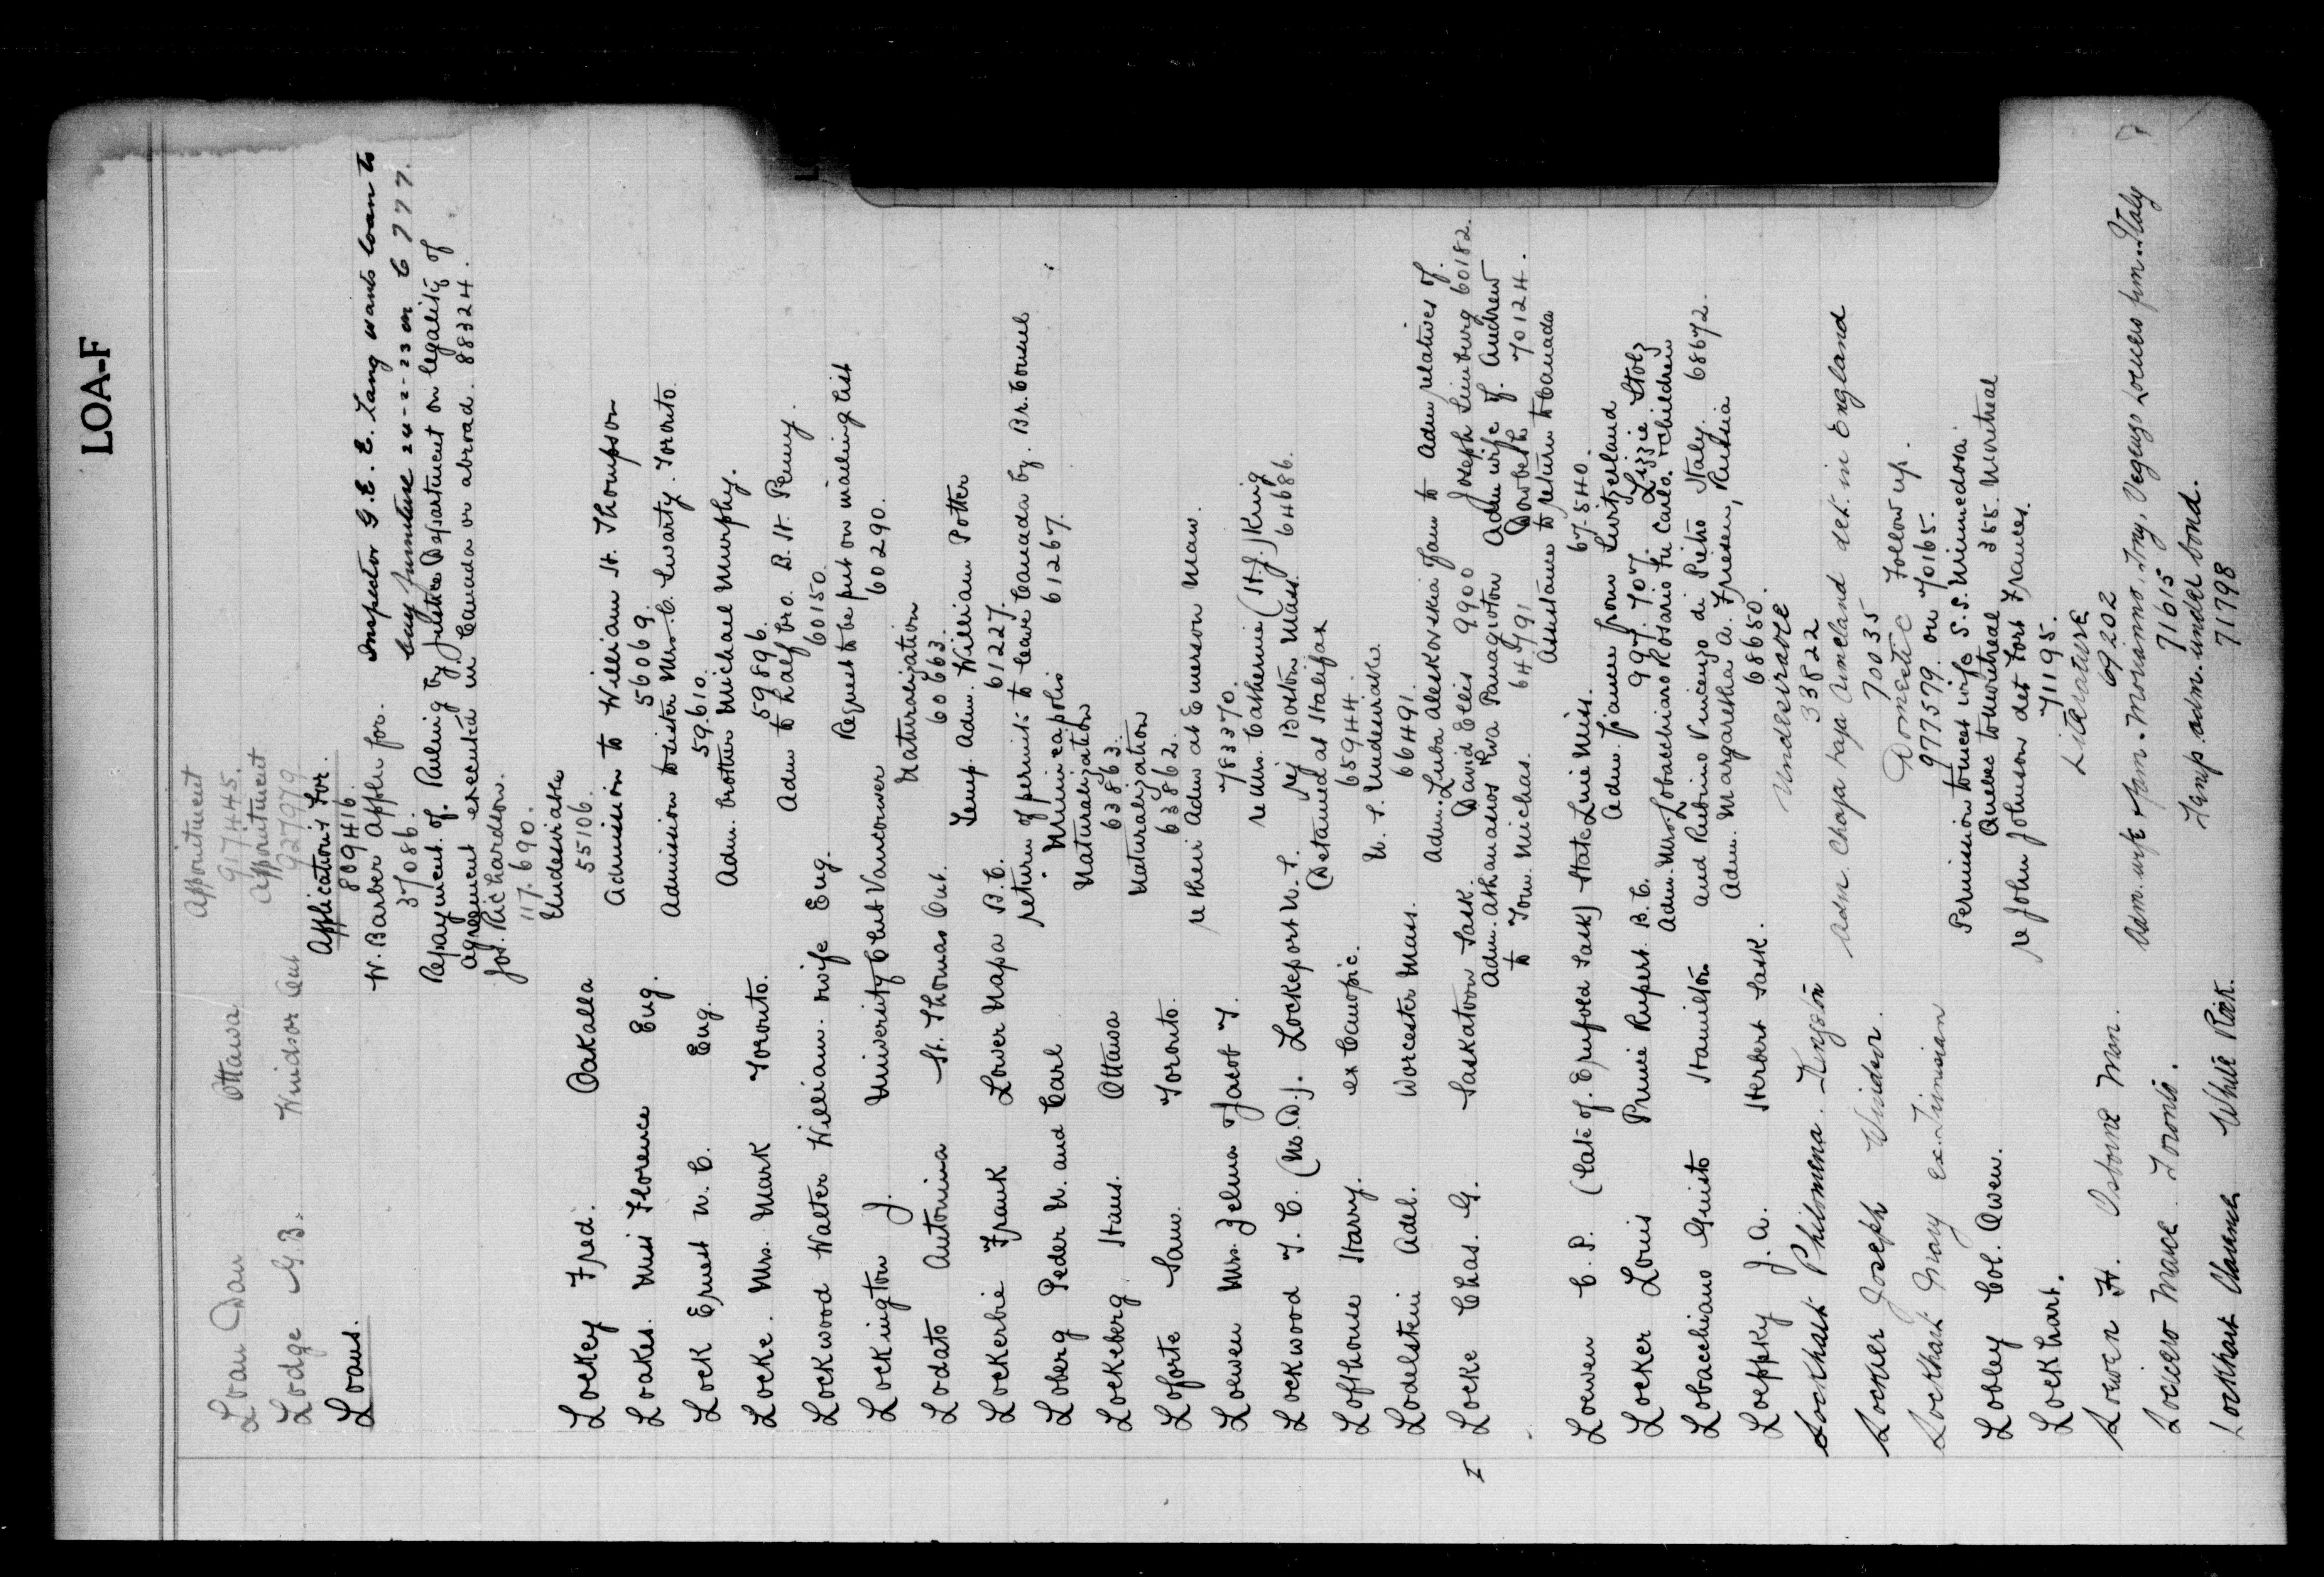 LOA-F
Loan Dan Ottawa Appointment
917445.
Lodge G.B. Windsor Ont Appointment
927979
Loans. Applications for.
809416.
W. Barber Appln for. Inspector G.E.E. Lang wants loan to
37086. buy furniture 24-2-23 on 6777.
Repayment of. Ruling by Justice Department on legality of
agreement executed in Canada or abroad. 88324.
Jos. Richardson.
117.690.
Lockey Fred. Oakalla Undesirable
55106.
Loakes. Miss Florence Eng. Admission to William H. Thompson
56069.
Lock Ernest W.C. Eng. Admission to sister Mrs. C. Swarty. Toronto.
59610.
Locke. Mrs. Mark Toronto. Adm. brother Michael Murphy.
59896.
Lockwood Walter William. wife Eng. Adm to half bro. B. H. Penny.
60150.
Lockington J. University Club Vancouver Request to be put on mailing list
60290.
Lodato Antonina St. Thomas Ont. Naturalization
60663.
Lockerbie Frank Lower Napa B.C. Temp. Adm. William Potter
61227.
Loberg Peder N. and Carl return of permit to leave Canada by. Br. Consul
Minneapolis 61267.
Lockeberg. Hans. Ottawa Naturalization
63863.
Loforte Sam. Toronto. Naturalization
63862.
Loewen Mrs. Zelma Jacob T. re their Adm at Emerson Man.
783370.
Lockwood T.C. (M.D.). Lockeport N.S. re Mrs. Catherine (H.J.) King
rej Boston Mass. 64686.
Lofthouse Harry. ex Canopic. (Detained at Halifax
65944.
Lodelstein Adel. Worcester Mass. U.S. Undesirable.
66491.
I Locke Chas. G. Saskatoon Sask. Adm. Luba Aleskovskia fam to Adm relatives of.
David Elis 9900 Joseph Limburg 60182.
Adm. Athanasios Riva Panagioton Adm wife of. Andrew
to Tom. Michas. 64791 70124.
Assistance to return to Canada
Loewen C.P. (late of. Sask) State Line Miss. 67.540.
Locker Louis Prince Rupert B.C. Adm. fiancee from Switzerland
997.707. Lizzie Stolz
Lobacchiaro Giusto Hamilton Adm. Mrs. Lobacchiaro Rosario Tu Carlo. children
and Rubino Vincenzo di Pietro Italy. 68672.
Loeppky J.A. Herbert Sask. Adm. Margaretha A. Friesen, Russia
68650.
Lockhart Philomena. Kingston Undesirable
33822
Lockier Joseph Windsor. Adm. Chaja det. in England
70035
Lockhart Mary ex. Tunisian Domestic Follow up.
977579. on 70165.
Lobley Col. Owen. Permission to meet wife S.S. Minnedosa.
Quebec to Montreal 355. Montreal
Lockhart. re John Johnson det Fort Frances.
71195.
Loewen H. Osborne Man. Literature
69202
Toronto. Adm. wife & fam. Tony, from Italy
71615
Lockhart Clarence White Rock. Temp. adm. under bond.
71798